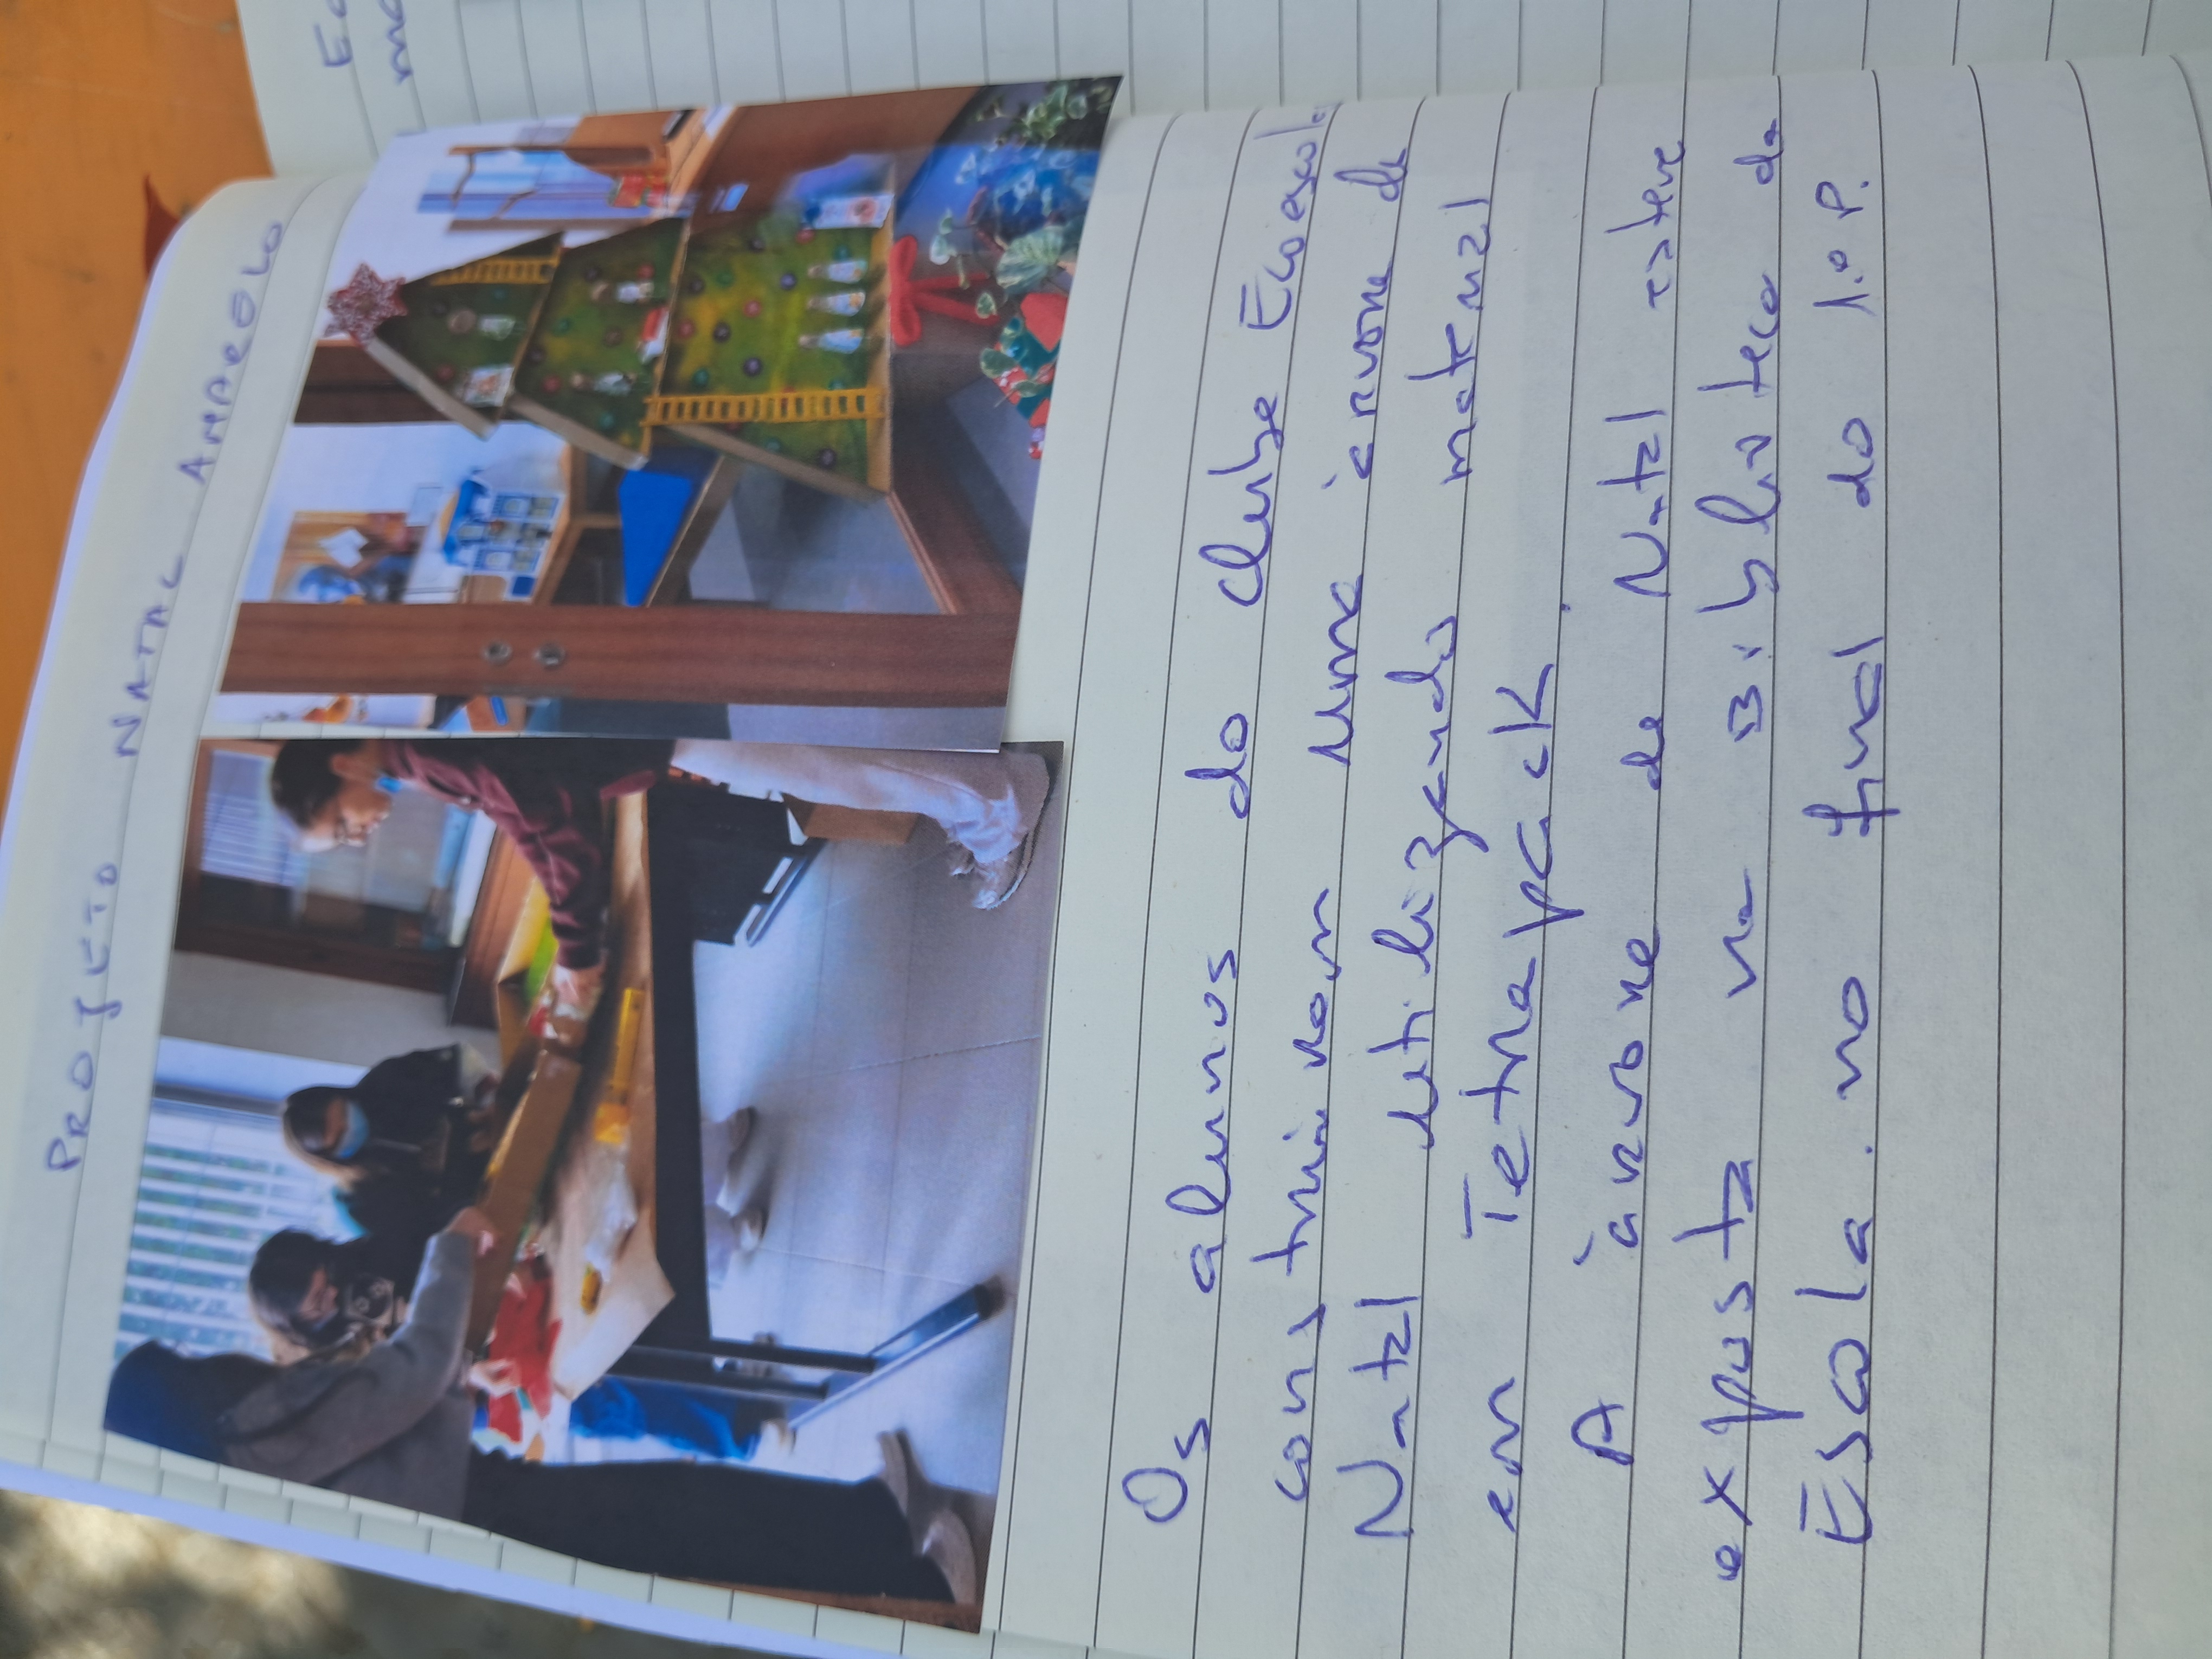 PROJETO NATAL AMARELO
Os alunos do clube Ecoescolas
construiram uma árvore de
Natal utilizando material
em Tetrapack.
A árvore de Natal esteve
exposta na Biblioteca da
Escola. no final do 1.º P.